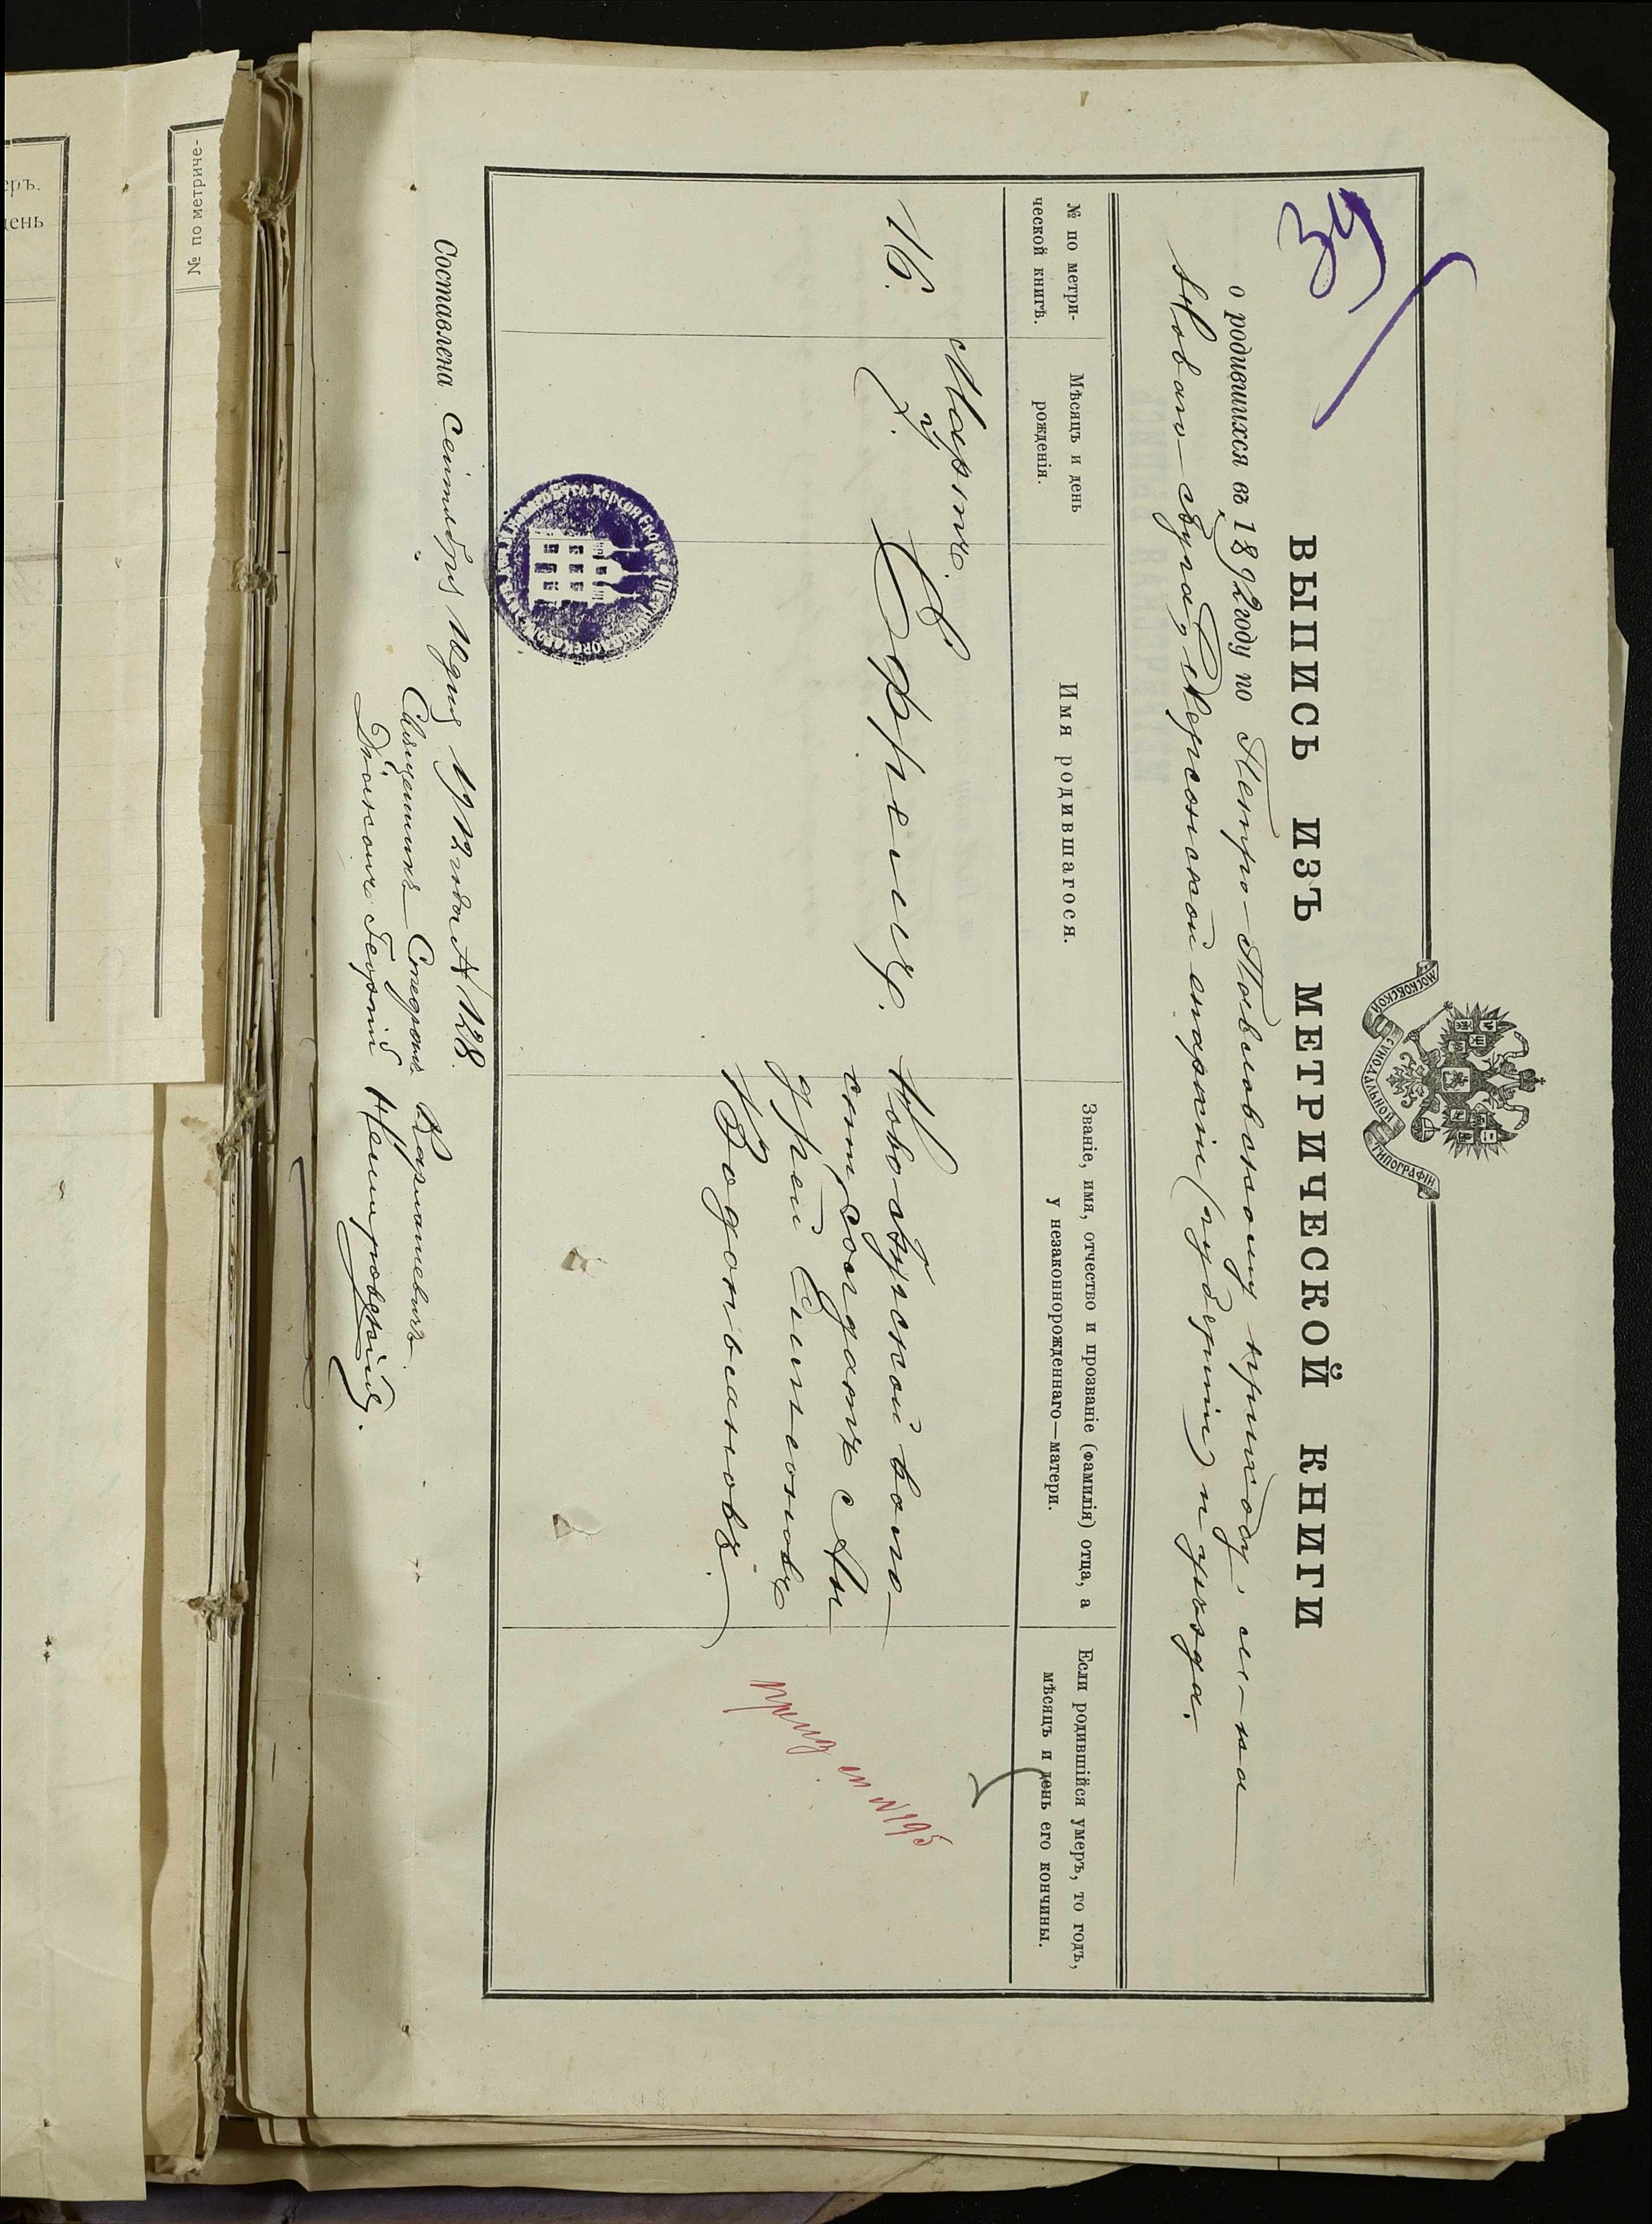 МОСКОВСКОЙ СѴНОДАЛЬНОЙ ТИПОГРАФІИ
34
ВЫПИСЬ ИЗЪ МЕТРИЧЕСКОЙ КНИГИ
о родившихся въ 1892 году по Петро-Павловскому приходу, м-ка
Новаго-Буга, Херсонской епархіи (губерніи) и уѣзда.
№ по метрической книгѣ.
Мѣсяцъ и день рожденія.
Имя родившагося.
Званіе, имя, отчество и прозваніе (фамилія) отца, а у незаконнорожденнаго—матери.
Если родившійся умеръ, то годъ, мѣсяцъ и день его кончины.
16.
Марта
Ефремъ.
Новобугской воло-
сти, солдатъ Ан
дрей Симеоновъ
Водопьяновъ.
№195
Составлена Сентября 10 дня 1912 года № 128.
Священникъ Стефанъ
Діаконъ Георгій
№ по метриче-
еръ.
день